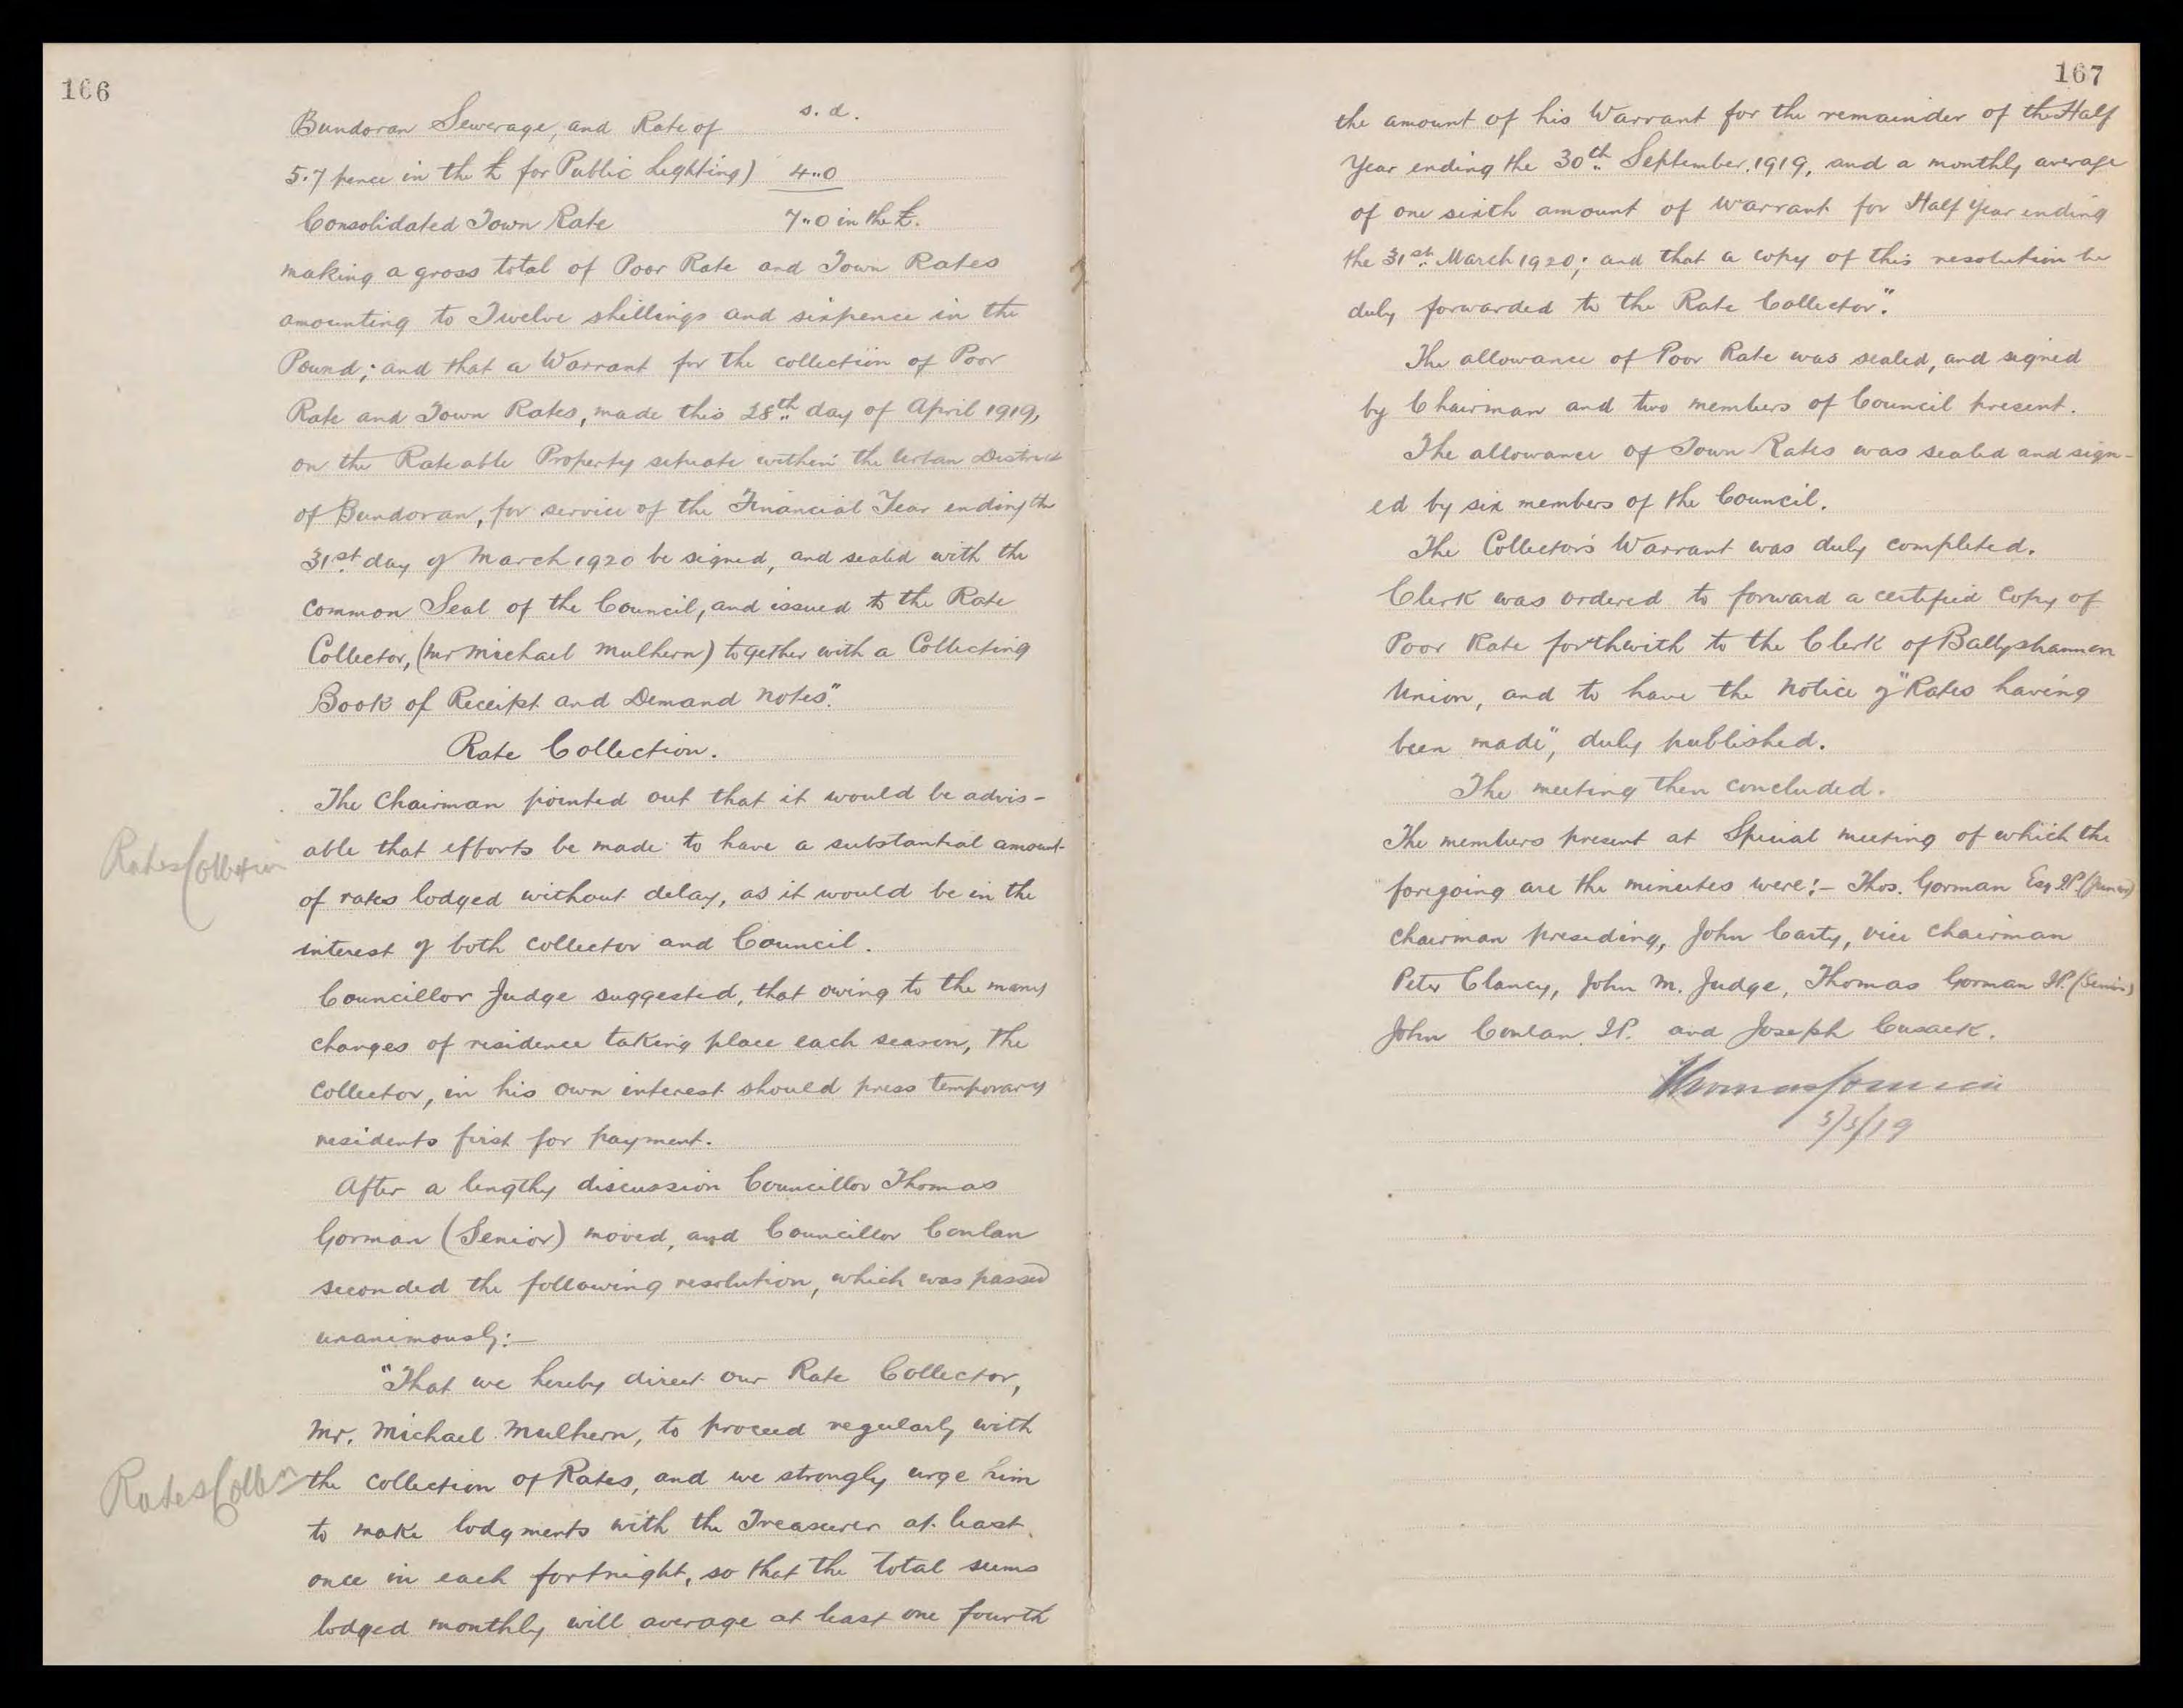 166
s. d.
Bundoran Sewerage, and Rate of
5.7 pence in the £ for Public Lighting) 4"0
Consolidated Town Rate 7"0 in the £.
making a gross total of Poor Rate and Town Rates
amounting to Twelve shillings and sixpence in the
Pound; and that a Warrant for the collection of Poor
Rate and Town Rates, made this 28th day of April 1919,
on the Rateable Property situate within the Urban District
of Bundoran, for service of the Financial Year ending the
31st day of March 1920 be signed, and sealed with the
Common Seal of the Council, and issued to the Rate
Collector, (Mr Michael Mulhern) together with a Collecting
Book of Receipt and Demand Notes".
Rate Collection.
The Chairman pointed out that it would be advis-
Rates Collection
able that efforts be made to have a substantial amount
of rates lodged without delay, as it would be in the
interest of both collector and Council.
Councillor Judge suggested, that owing to the many
changes of residence taking place each season, the
Collector, in his own interest should press temporary
residents first for payment.
After a lengthy discussion Councillor Thomas
Gorman (Senior) moved, and Councillor Conlan
seconded the following resolution, which was passed
unanimously:—
"That we hereby direct our Rate Collector,
Mr. Michael Mulhern, to proceed regularly with
Rates
the collection of Rates, and we strongly urge him
to make lodgments with the Treasurer at least
once in each fortnight, so that the total sums
lodged monthly will average at least one fourth
167
the amount of his Warrant for the remainder of the Half
Year ending the 30th September, 1919, and a monthly average
of one sixth amount of Warrant for Half Year ending
the 31st March 1920; and that a copy of this resolution be
duly forwarded to the Rate Collector".
The allowance of Poor Rate was sealed, and signed
by Chairman and two members of Council present.
The allowance of Town Rates was sealed and sign-
ed by six members of the Council.
The Collector's Warrant was duly completed.
Clerk was ordered to forward a certified Copy of
Poor Rate forthwith to the Clerk of Ballyshannon
Union, and to have the notice of "Rates having
been made", duly published.
The meeting then concluded.
The members present at Special meeting of which the
foregoing are the minutes were:— Thos. Gorman Esq JP. (Junior)
Chairman presiding, John Carty, vice Chairman
Peter Clancy, John M. Judge, Thomas Gorman JP. (Senior)
John Conlan JP. and Joseph Cusack.
Thomas Gorman